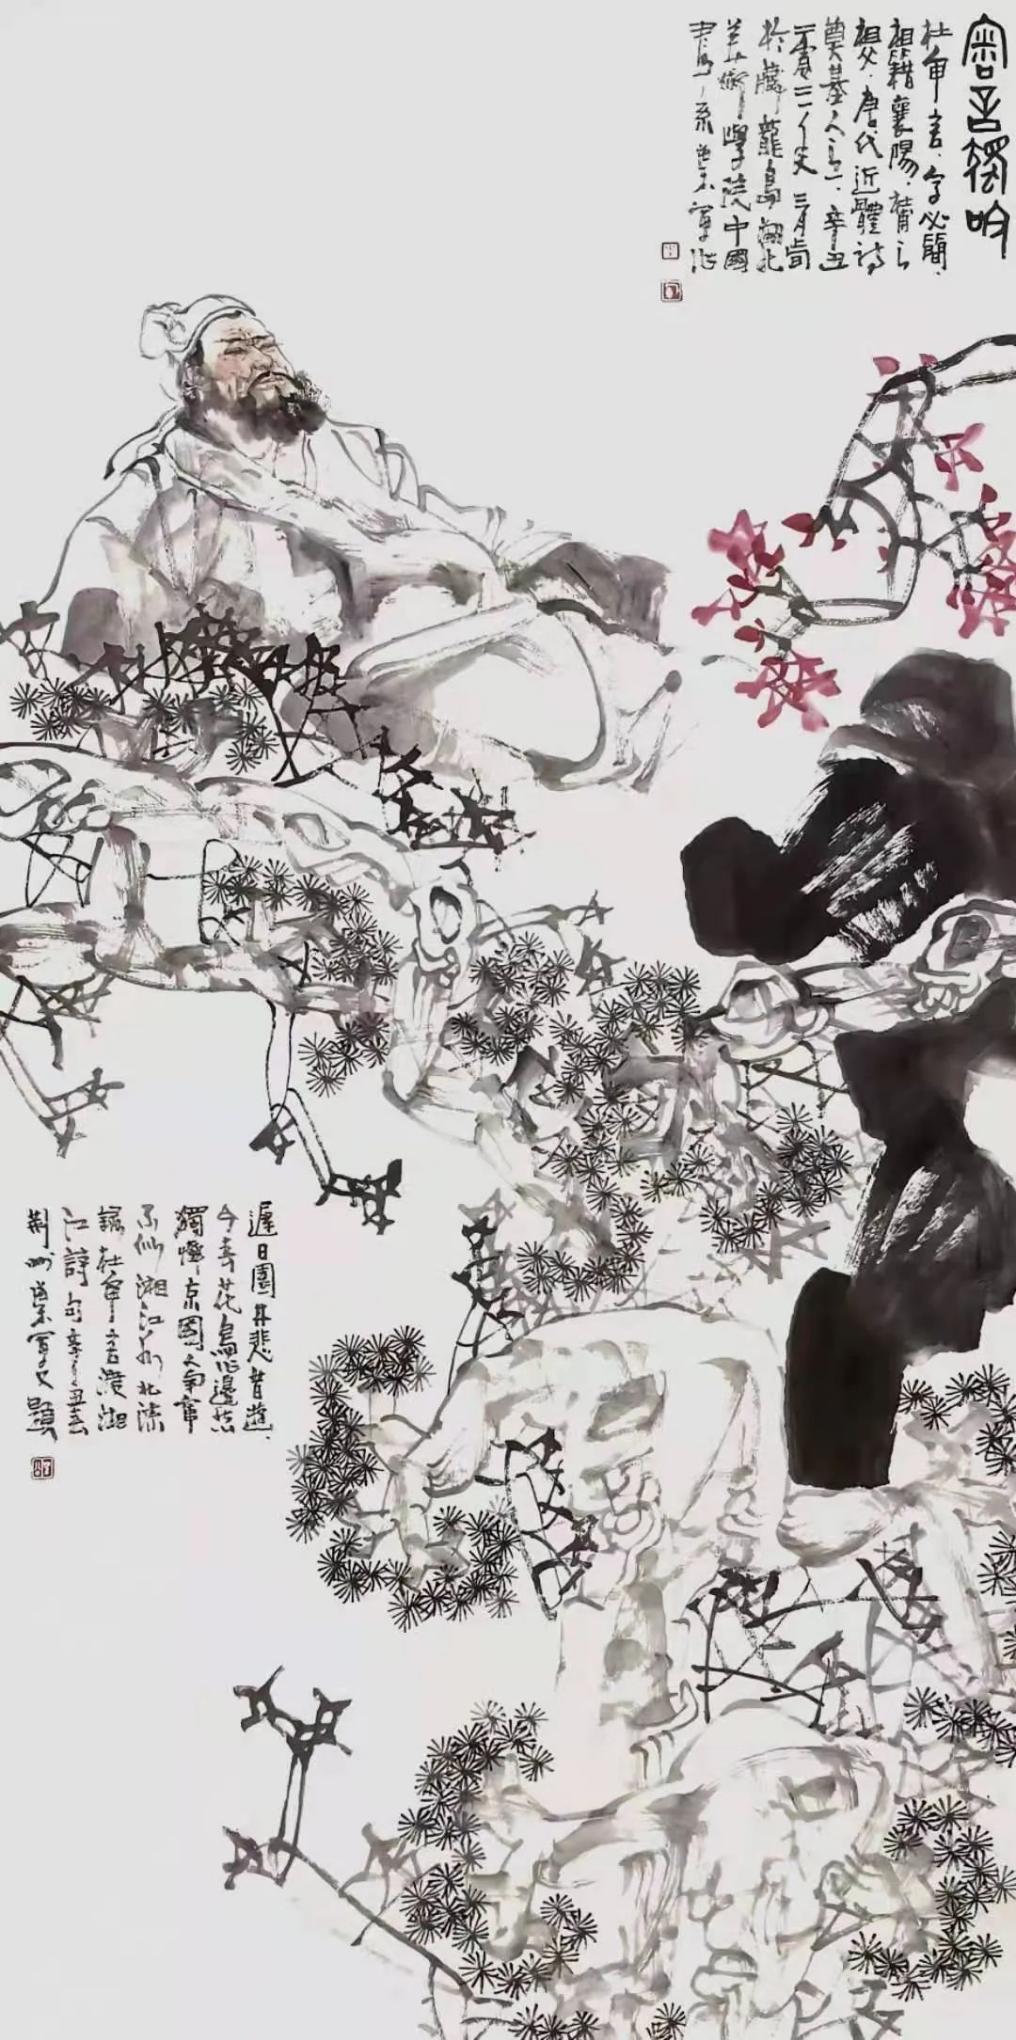 審言吟
杜審言，字必簡，
祖籍襄陽，杜甫之
祖父，唐代近體詩
奠基人之一，辛丑
二零二一年三月上旬
於藏龍島湖北
美術學院中國
畫系軍作
遲日園林悲昔遊，
今春花鳥作邊愁
獨憐京國人南竄
不似湘江水北流
錄杜審言渡湘
江詩句辛丑春
荊州軍又題